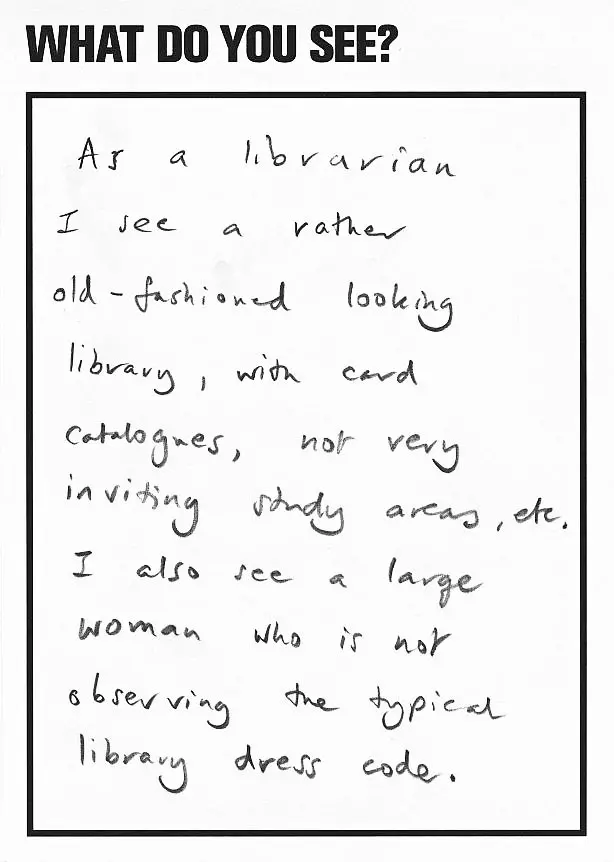 WHAT DO YOU SEE?
As a librarian
I see a rather
old-fashioned looking
library, with card
catalogues, not very
inviting study areas, etc.
I also see a large
woman who is not
observing the typical
library dress code.